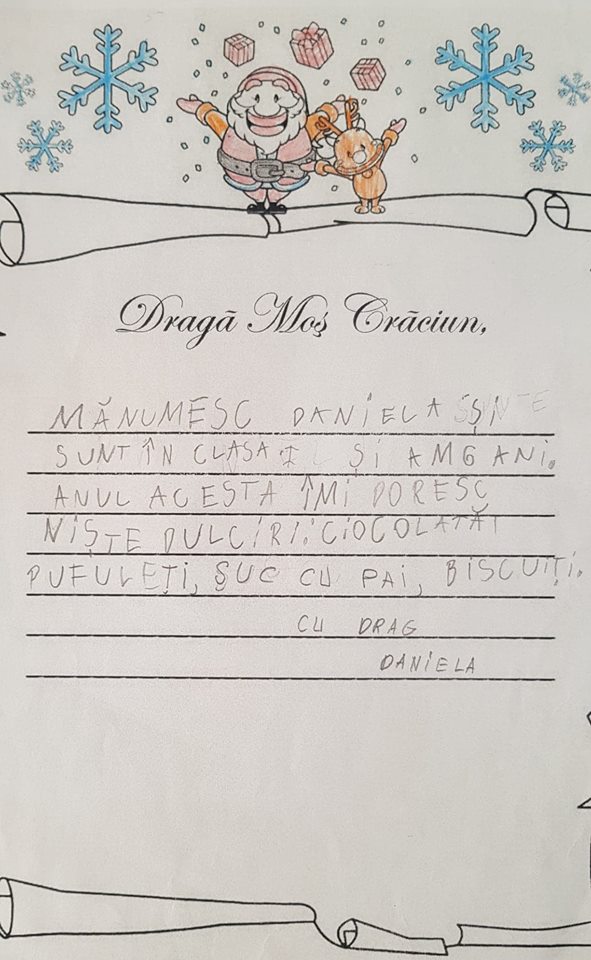 Dragă Moș Crăciun,
MĂNUMESC DANIELA ȘI
SUNT ÎN CLASA I ȘI AM 6 ANI.
ANUL ACESTA ÎMI DORESC
NIȘTE DULCIRI: CIOCOLATĂ
PUFULEȚI, SUC CU PAI, BISCUIȚI.
CU DRAG
DANIELA